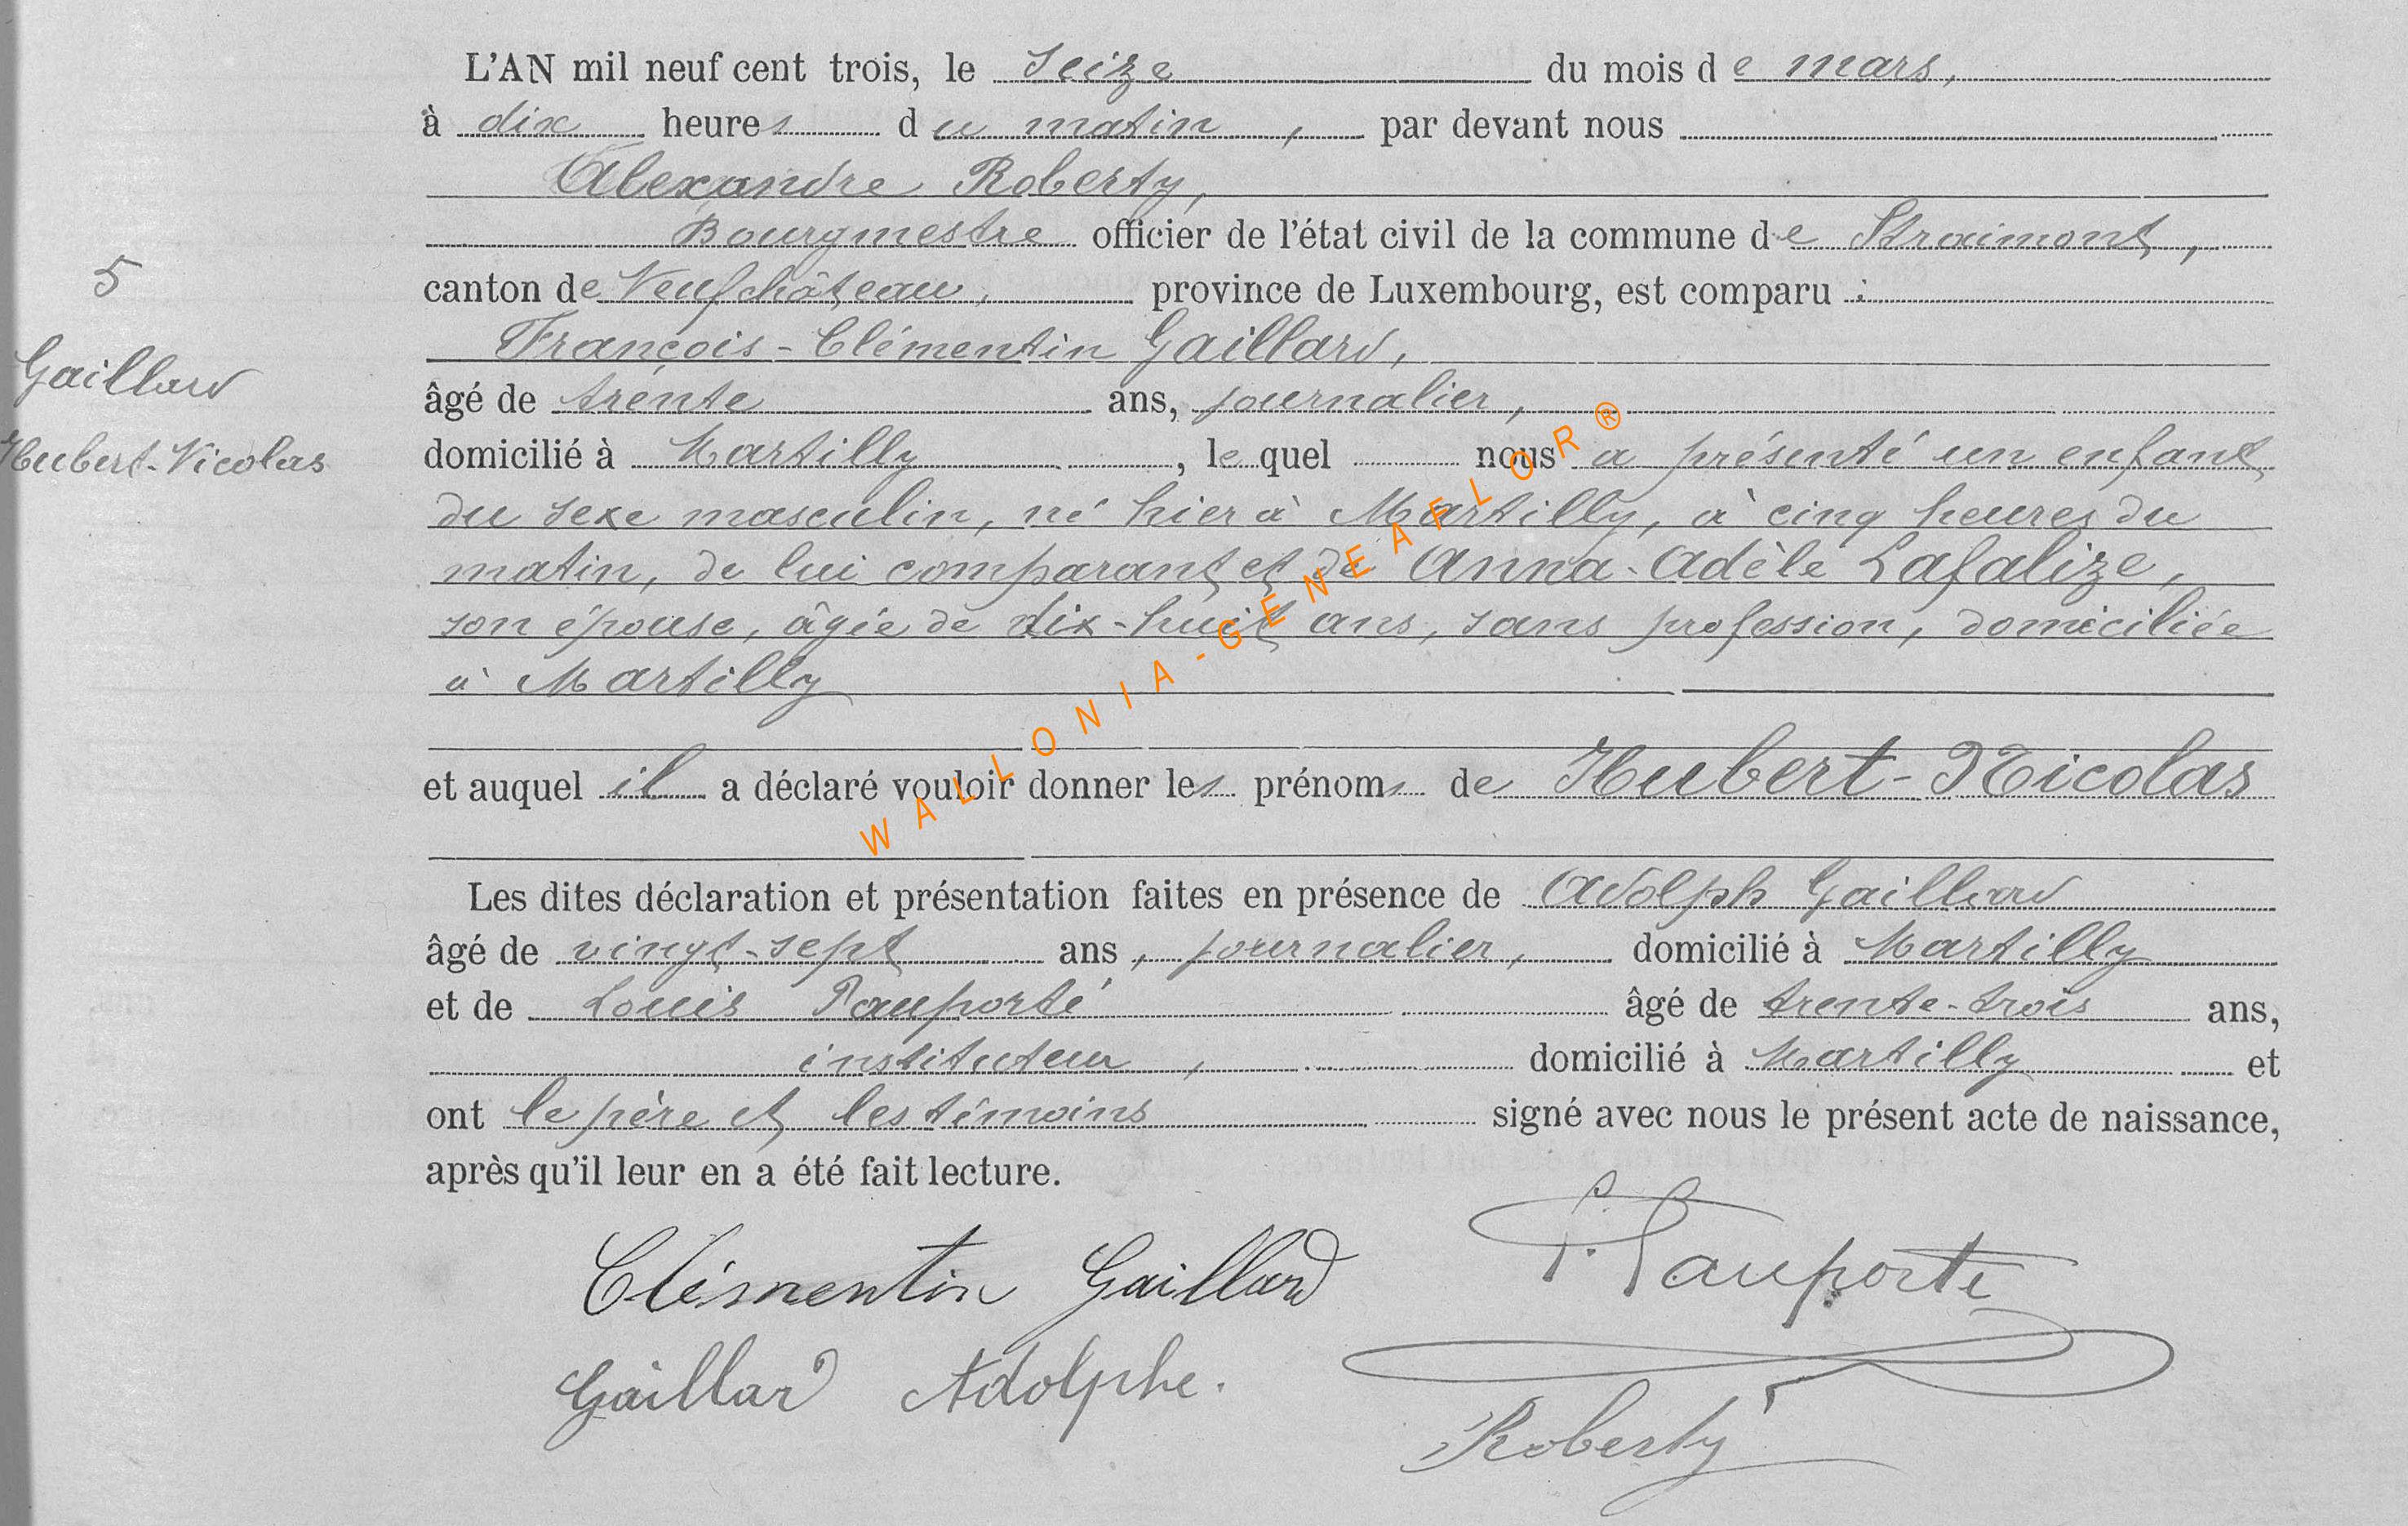 L'AN mil neuf cent trois, le seize du mois de mars,
à dix heures du matin, par devant nous
Alexandre Roberty,
Bourgmestre officier de l'état civil de la commune de Straimont,
5
canton de Neufchâteau, province de Luxembourg, est comparu :
François-Clémentin Gaillard,
Gaillard
âgé de trente ans, journalier,
Hubert-Nicolas
domicilié à Martilly, lequel nous a présenté un enfant
du sexe masculin, né hier à Martilly, à cinq heures du
matin, de lui comparant et de Anna-Adèle Lafalize,
son épouse, âgée de dix-huit ans, sans profession, domiciliée
à Martilly
et auquel il a déclaré vouloir donner les prénoms de Hubert-Nicolas
Les dites déclaration et présentation faites en présence de Adolph Gaillard
âgé de vingt-sept ans, journalier, domicilié à Martilly
et de Louis Pauporté âgé de trente-trois ans,
instituteur, domicilié à Martilly et
ont le père et les témoins signé avec nous le présent acte de naissance,
après qu'il leur en a été fait lecture.
Clémentin Gaillard
Pauporté
Gaillard Adolphe.
Roberty
WALLONIA-GENEAFLOR®